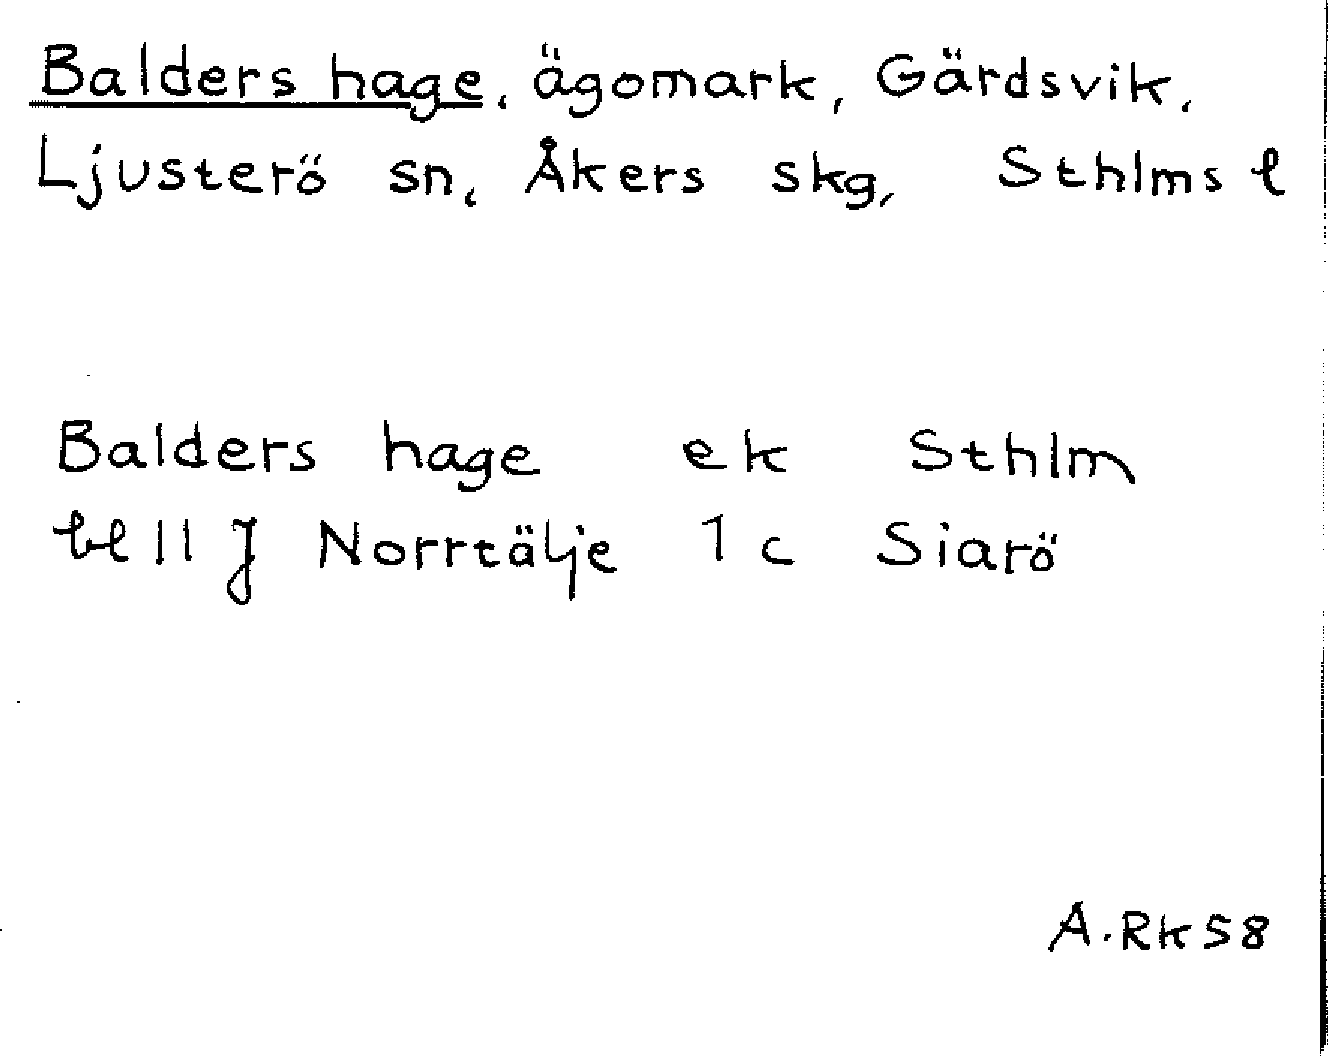 Balders hage, ägomark, Gärdsvik,
Ljusterö sn, Åkers skg, Sthlms l
Balders hage ek Sthlm
bl 11 J Norrtälje 1 c Siarö
A.RK58